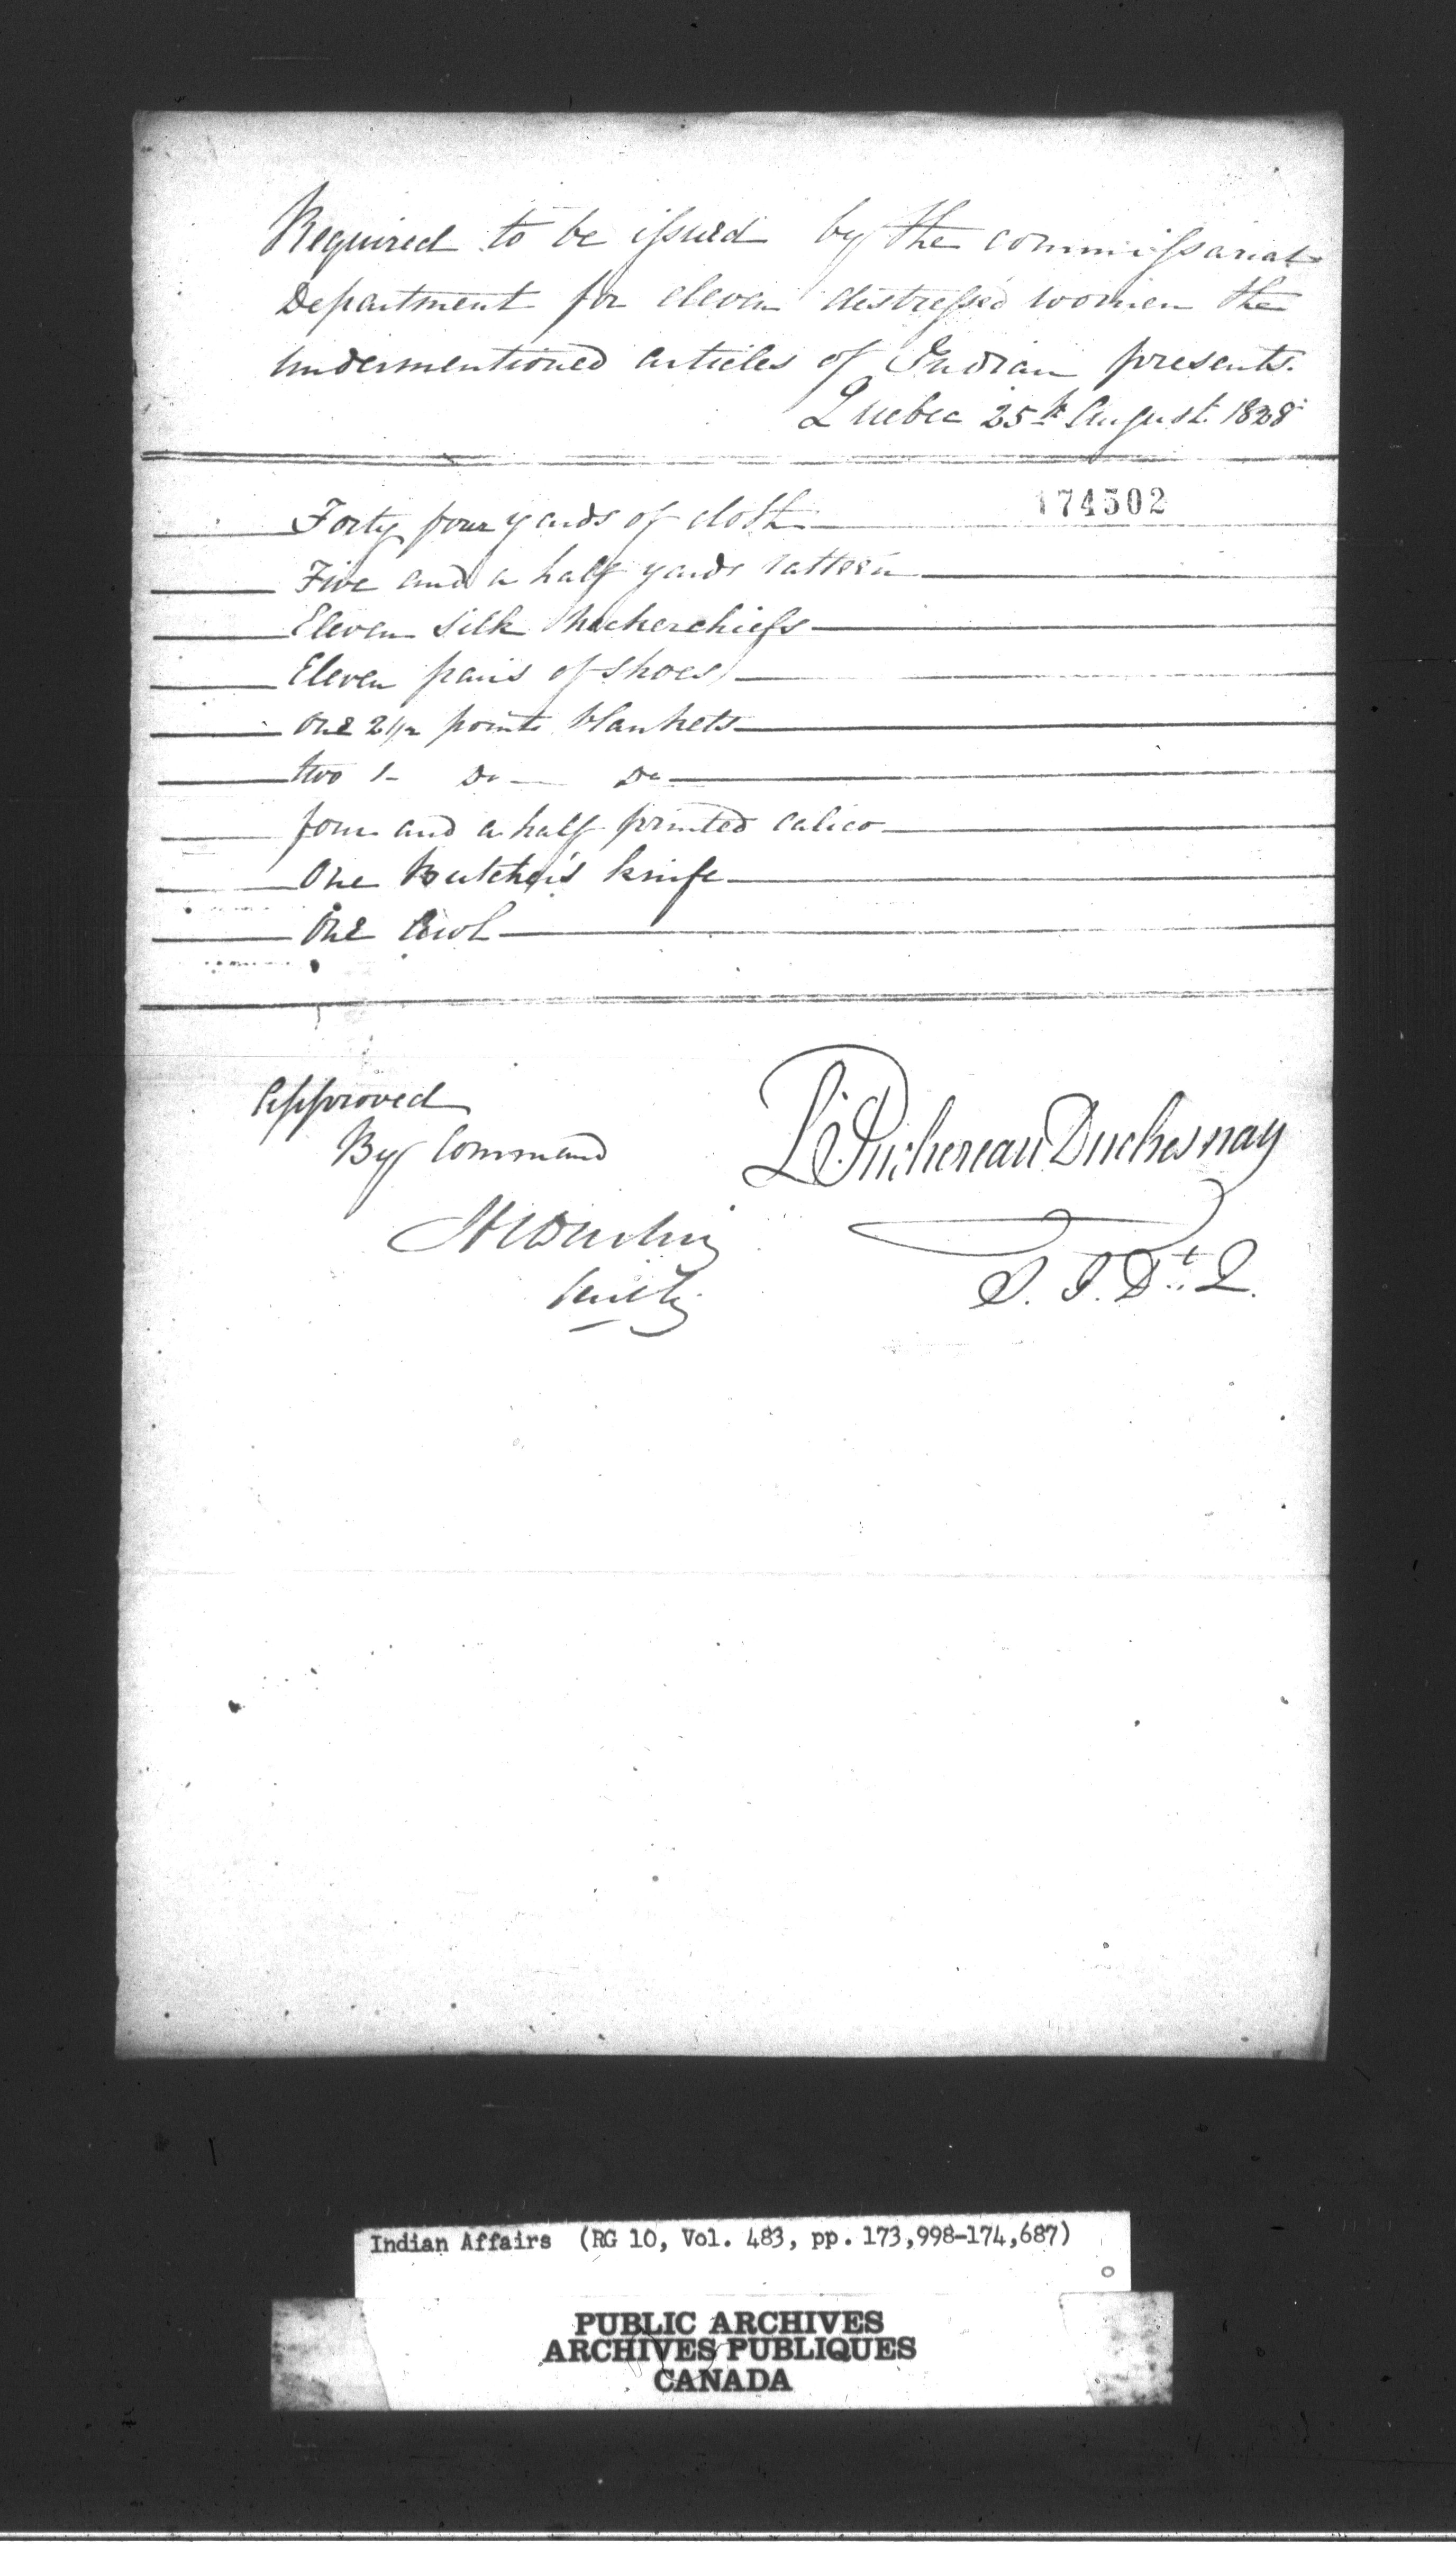 Required to be issued by the commissariat
Department for eleven distressed women the
undermentioned articles of Indian presents.
Quebec 25th August 1828
174502
Forty four yards of cloth
Five and a half yards ratteen
Eleven silk hackerchiefs
Eleven pairs of shoes
One 2 1/2 points blankets
two 1 Do Do
four and a half printed calico
One Butcher's knife
One Awl
Approved
By Command
L. Juchereau Duchesnay
S. I. Dt. Q.
Indian Affairs (RG 10, Vol. 483, pp. 173,998-174,687)
PUBLIC ARCHIVES
ARCHIVES PUBLIQUES
CANADA